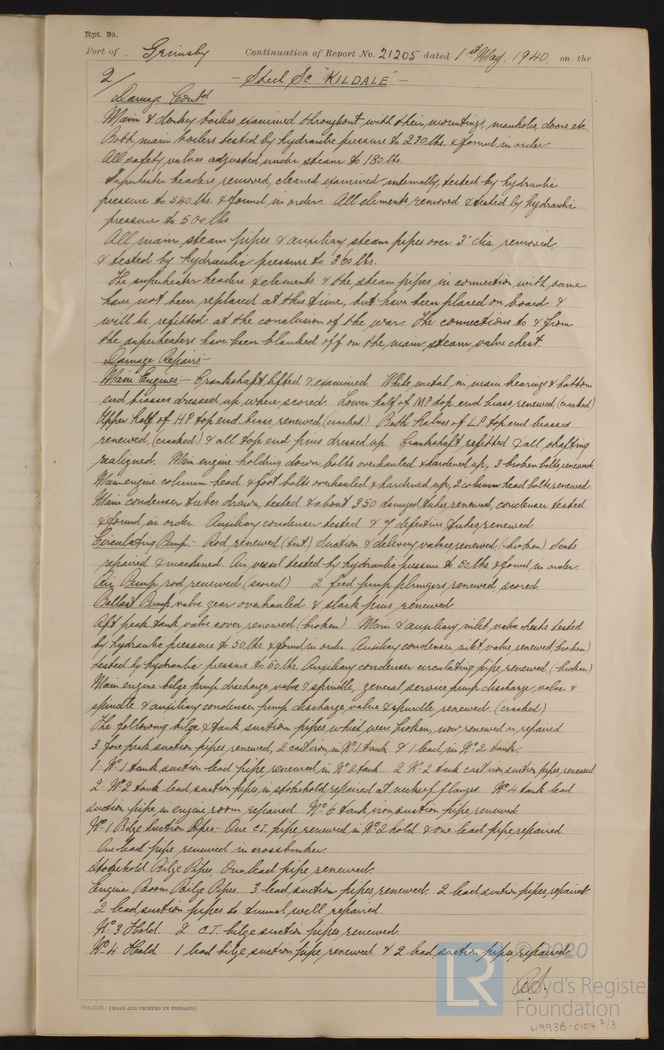 Rpt. 9a.
Port of Grimsby Continuation of Report No. 21205 dated 1st May, 1940. on the
2/ - Steel Sc "KILDALE" -
Damage Contd
Main & donkey boilers examined throughout with their mountings, manholes, doors etc.
Both main boilers tested by hydraulic pressure to 230 lbs. & found in order.
All safety valves adjusted under steam to 180 lbs.
Superheater headers, removed, cleaned, examined internally, tested by hydraulic
pressure to 540 lbs. & found in order. All elements removed & tested by hydraulic
pressure to 500 lbs
All main steam pipes & auxiliary steam pipes over 3" dia. removed,
& tested by hydraulic pressure to 360 lbs.
The superheater headers & elements & the steam pipes in connection with same
have not been replaced at this time, but have been placed on board &
will be refitted at the conclusion of the war. The connections to & from
the superheaters have been blanked off on the main steam valve chest.
Damage Repairs:-
Main Engines:- Crankshaft lifted & examined. White metal in main bearings & bottom
end brasses dressed up where scored. Lower half of M.P top end brass renewed (cracked)
Upper half of H.P top end brass renewed (cracked) Both halves of L.P top end brasses
renewed (cracked) & all top end pins dressed up. Crankshaft refitted & all shafting
realigned. Main engine holding down bolts overhauled & hardened up, 3 broken bolts renewed.
Main engine column head & foot bolts overhauled & hardened up, 2 column head bolts renewed
Main condenser tubes drawn, tested & about 350 damaged tubes renewed, condenser tested
& found in order. Auxiliary condenser tested & 7 defective tubes renewed
Circulating Pump:- Rod renewed (bent) Suction & delivery valves renewed (broken) Seats
repaired & machined. Air vessel tested by hydraulic pressure to 50 lbs & found in order.
Air Pump rod renewed (scored) 2 feed pump plungers renewed, scored
Ballast Pump valve gear overhauled & slack pins renewed
Aft peak tank valve cover renewed (broken) Main & auxiliary inlet valve chests tested
by hydraulic pressure to 50 lbs & found in order. Auxiliary condenser inlet valve renewed (broken)
tested by hydraulic pressure to 50 lbs. Auxiliary condenser circulating pipe renewed, (broken)
Main engine bilge pump discharge valve & spindle, general service pump discharge valve &
spindle & auxiliary condenser pump discharge valve & spindle renewed. (cracked)
The following bilge & tank suction pipes, which were broken, now renewed or repaired
3 fore peak suction pipes renewed, 2 cast iron in No 1 tank & 1 lead in No 2 tank.
1 No 1 tank suction lead pipe renewed in No 2 tank 2 No 2 tank cast iron suction pipes renewed
2 No 2 tank lead suction pipes in stokehold repaired at necks of flanges. No 4 tank lead
suction pipe in engine room repaired No 6 tank iron suction pipe renewed
No 1 Bilge Suction Pipes - One C.I. pipe renewed in No 2 hold & one lead pipe repaired
One lead pipe renewed in cross bunker.
Stokehold Bilge Pipes. One lead pipe renewed.
Engine Room Bilge Pipes. 3 lead suction pipes renewed. 2 lead suction pipes repaired
2 lead suction pipes to tunnel well repaired
No 3 Hold 2 C.I. bilge suction pipes renewed.
No 4 Hold 1 lead bilge suction pipe renewed & 2 lead suction pipes repaired
© 2020
LR Lloyd's Register
Foundation
(MADE AND PRINTED IN ENGLAND)
W993B-0104 2/3